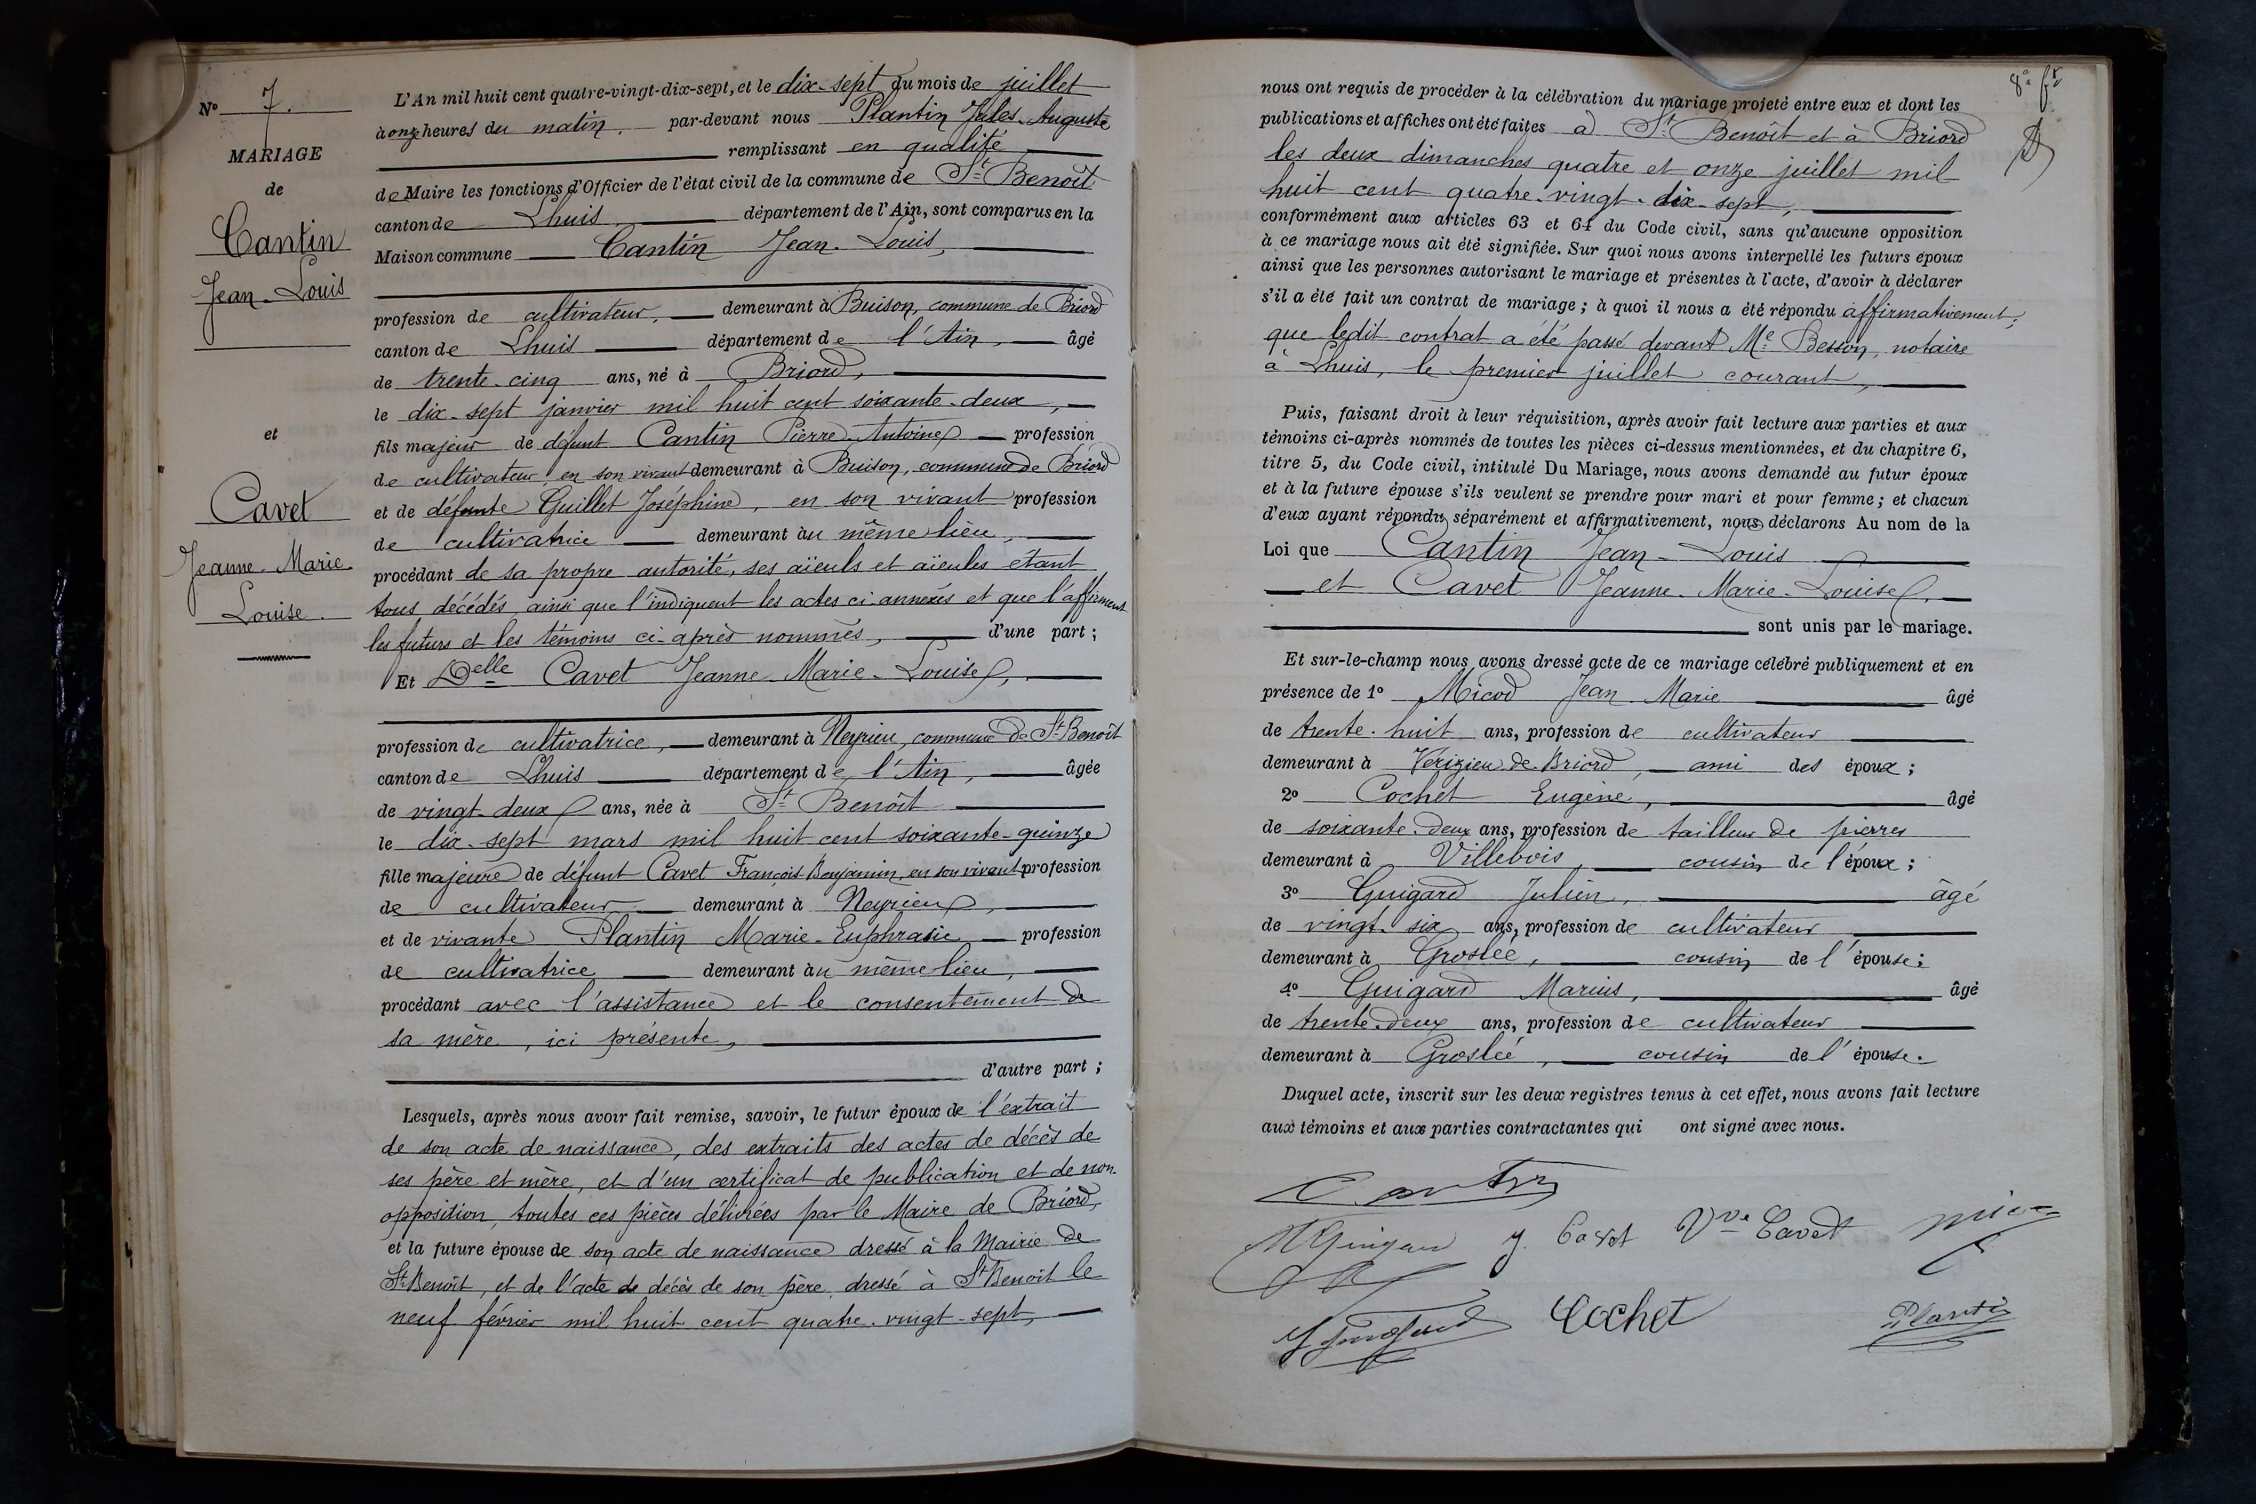 N° 7.
MARIAGE
de
Cantin
Jean-Louis
et
Cavet
Jeanne-Marie-
Louise.
L'An mil huit cent quatre-vingt-dix-sept, et le dix-sept du mois de juillet
à onze heures du matin, par-devant nous Plantin Jules-Auguste
remplissant en qualité
de Maire les fonctions d'Officier de l'état civil de la commune de St Benoît
canton de Lhuis département de l'Ain, sont comparus en la
Maison commune Cantin Jean-Louis,
profession de cultivateur, demeurant à Buison, commune de Briord
canton de Lhuis département de l'Ain, âgé
de trente-cinq ans, né à Briord,
le dix-sept janvier mil huit cent soixante-deux,
fils majeur de défunt Cantin Pierre-Antoine profession
de cultivateur, en son vivant demeurant à Buison, commune de Briord
et de défunte Guillet Joséphine, en son vivant profession
de cultivatrice demeurant au même lieu,
procédant de sa propre autorité, ses aïeuls et aïeules étant
tous décédés, ainsi que l'indiquent les actes ci-annexés et que l'affirment
les futurs et les témoins ci-après nommés, d'une part;
Et Delle Cavet Jeanne-Marie-Louise,
profession de cultivatrice, demeurant à Neyrieu, commune de St Benoît
canton de Lhuis département de l'Ain, âgée
de vingt-deux ans, née à St Benoît
le dix-sept mars mil huit cent soixante-quinze
fille majeure de défunt Cavet François Benjamin, en son vivant profession
de cultivateur demeurant à Neyrieu,
et de vivante Plantin Marie-Euphrasie profession
de cultivatrice demeurant au même lieu,
procédant avec l'assistance et le consentement de
sa mère, ici présente,
d'autre part;
Lesquels, après nous avoir fait remise, savoir, le futur époux de l'extrait
de son acte de naissance, des extraits des actes de décès de
ses père et mère, et d'un certificat de publication et de non-
opposition, toutes ces pièces délivrées par le Maire de Briord,
et la future épouse de son acte de naissance dressé à la Mairie de
St Benoît, et de l'acte de décès de son père, dressé à St Benoît le
neuf février mil huit cent quatre-vingt-sept,
8e ft
nous ont requis de procéder à la célébration du mariage projeté entre eux et dont les
publications et affiches ont été faites à St Benoît et à Briord
les deux dimanches quatre et onze juillet mil
huit cent quatre-vingt-dix-sept,
conformément aux articles 63 et 64 du Code civil, sans qu'aucune opposition
à ce mariage nous ait été signifiée. Sur quoi nous avons interpellé les futurs époux
ainsi que les personnes autorisant le mariage et présentes à l'acte, d'avoir à déclarer
s'il a été fait un contrat de mariage; à quoi il nous a été répondu affirmativement;
que ledit contrat a été passé devant Me Besson, notaire
à Lhuis, le premier juillet courant,
Puis, faisant droit à leur réquisition, après avoir fait lecture aux parties et aux
témoins ci-après nommés de toutes les pièces ci-dessus mentionnées, et du chapitre 6,
titre 5, du Code civil, intitulé Du Mariage, nous avons demandé au futur époux
et à la future épouse s'ils veulent se prendre pour mari et pour femme; et chacun
d'eux ayant répondu séparément et affirmativement, nous déclarons Au nom de la
Loi que Cantin Jean-Louis
et Cavet Jeanne-Marie-Louise,
sont unis par le mariage.
Et sur-le-champ nous avons dressé acte de ce mariage célébré publiquement et en
présence de 1° Micod Jean-Marie âgé
de trente-huit ans, profession de cultivateur
demeurant à Vérizieu-de-Briord, ami des époux;
2° Cochet Eugène, âgé
de soixante-deux ans, profession de tailleur de pierres
demeurant à Villebois, cousin de l'époux;
3° Guigard Julien, âgé
de vingt-six ans, profession de cultivateur
demeurant à Groslée, cousin de l'épouse;
4° Guigard Marius, âgé
de trente-deux ans, profession de cultivateur
demeurant à Groslée, cousin de l'épouse.
Duquel acte, inscrit sur les deux registres tenus à cet effet, nous avons fait lecture
aux témoins et aux parties contractantes qui ont signé avec nous.
Cantin
M Guigard J. Cavet Vve Cavet Micod
J Guigard Cochet Plantin